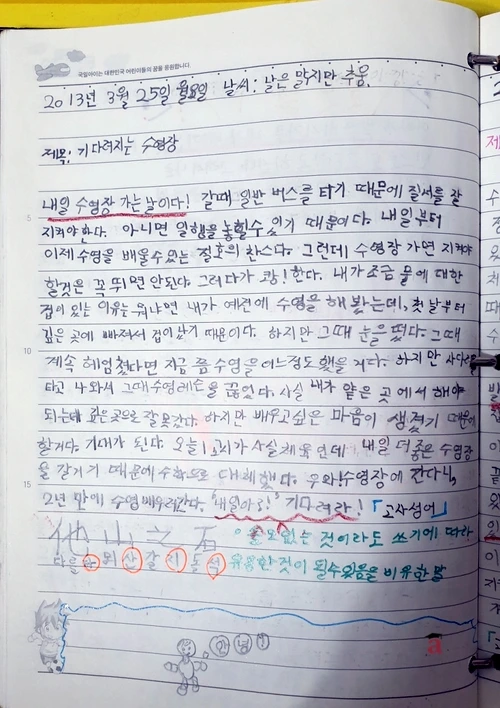 국일아이는 대한민국 어린이들의 꿈을 응원합니다.
2013년 3월 25일 월요일 날씨: 날은 맑지만 추움.
제목: 기다려지는 수영장
내일 수영장 가는 날이다! 갈때 일반 버스를 타기 때문에 질서를 잘
5
지켜야 한다. 아니면 일행을 놓칠수 있기 때문이다. 내일부터
이제 수영을 배울수 있는 절호의 찬스다. 그런데 수영장 가면 지켜야
할것은 꼭 뛰면 안된다. 그러다가 쾅! 한다. 내가 조금 물에 대한
겁이 있는 이유는 뭐냐면 내가 예전에 수영을 해 봤는데, 첫 날부터
깊은 곳에 빠져서 겁이 났기 때문이다. 하지만 그때 눈을 떴다. 그때
10
계속 헤엄쳤다면 지금 쯤 수영을 어느정도 했을 거다. 하지만 사다리
타고 나와서 그때 수영레슨을 끊었다. 사실 내가 얕은 곳에서 해야
되는데 깊은 곳으로 잘못갔다. 하지만 배우고 싶은 마음이 생겼기 때문에
할거다. 기대가 된다. 오늘 1교시가 사실 체육인데 내일 더 좋은 수영장
을 갈거기 때문에 수학으로 대체했다. 우와! 수영장에 간다니,
15
2년 만에 수영 배우러간다. "내일아!" 기다려라! 「고사성어」
他山之石 이 쓸모없는 것이라도 쓰기에 따라
타를 타 뫼 산 갈 지 돌 석 유용한 것이 될수 있음을 비유한 말
안녕
a